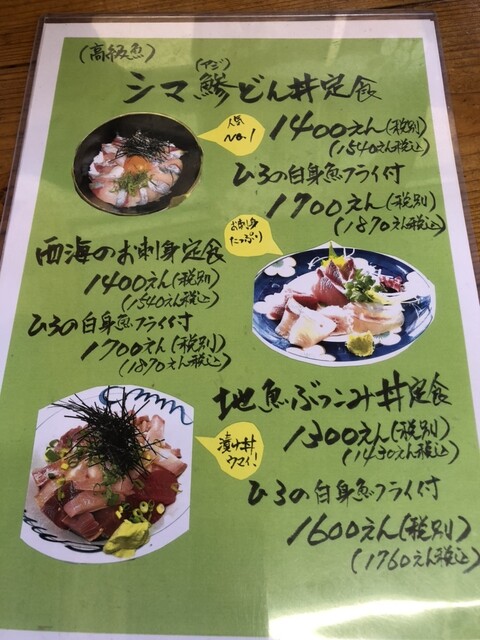 (高級魚)
(アジ)
シマ鯵どん丼定食
人気
No.1
1400えん(税別)
(1540えん税込)
ひろの白身魚フライ付
1700えん(税別)
(1870えん税込)
お刺身
たっぷり
西海のお刺身定食
1400えん(税別)
(1540えん税込)
ひろの白身魚フライ付
1700えん(税別)
(1870えん税込)
地魚ぶっこみ丼定食
漬け丼
ウマイ!
1300えん(税別)
(1430えん税込)
ひろの白身魚フライ付
1600えん(税別)
(1760えん税込)